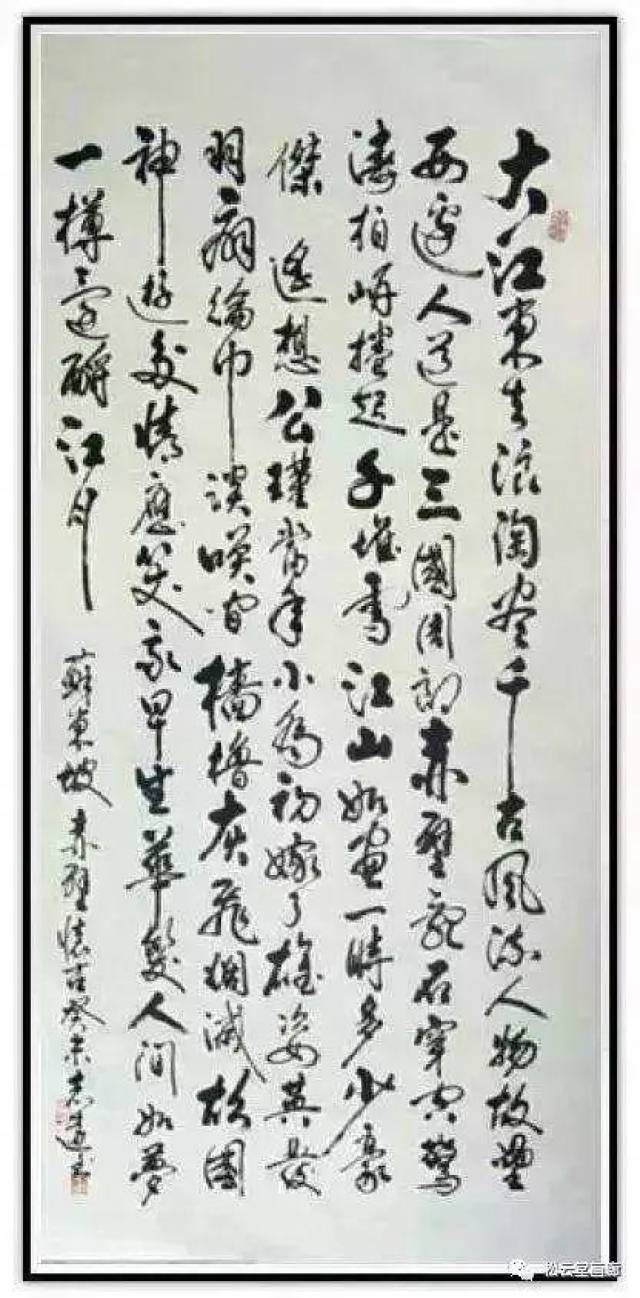 大江東去浪淘盡千古風流人物故壘
西邊人道是三國周郎赤壁亂石穿空驚
濤拍岸捲起千堆雪江山如畫一時多少豪
傑 遙想公瑾當年小喬初嫁了雄姿英發
羽扇綸巾談咲間檣櫓灰飛烟滅故國
神遊多情應笑我早生華髮人間如夢
一樽還酹江月
蘇東坡赤壁懷古癸未志書
云堂画廊